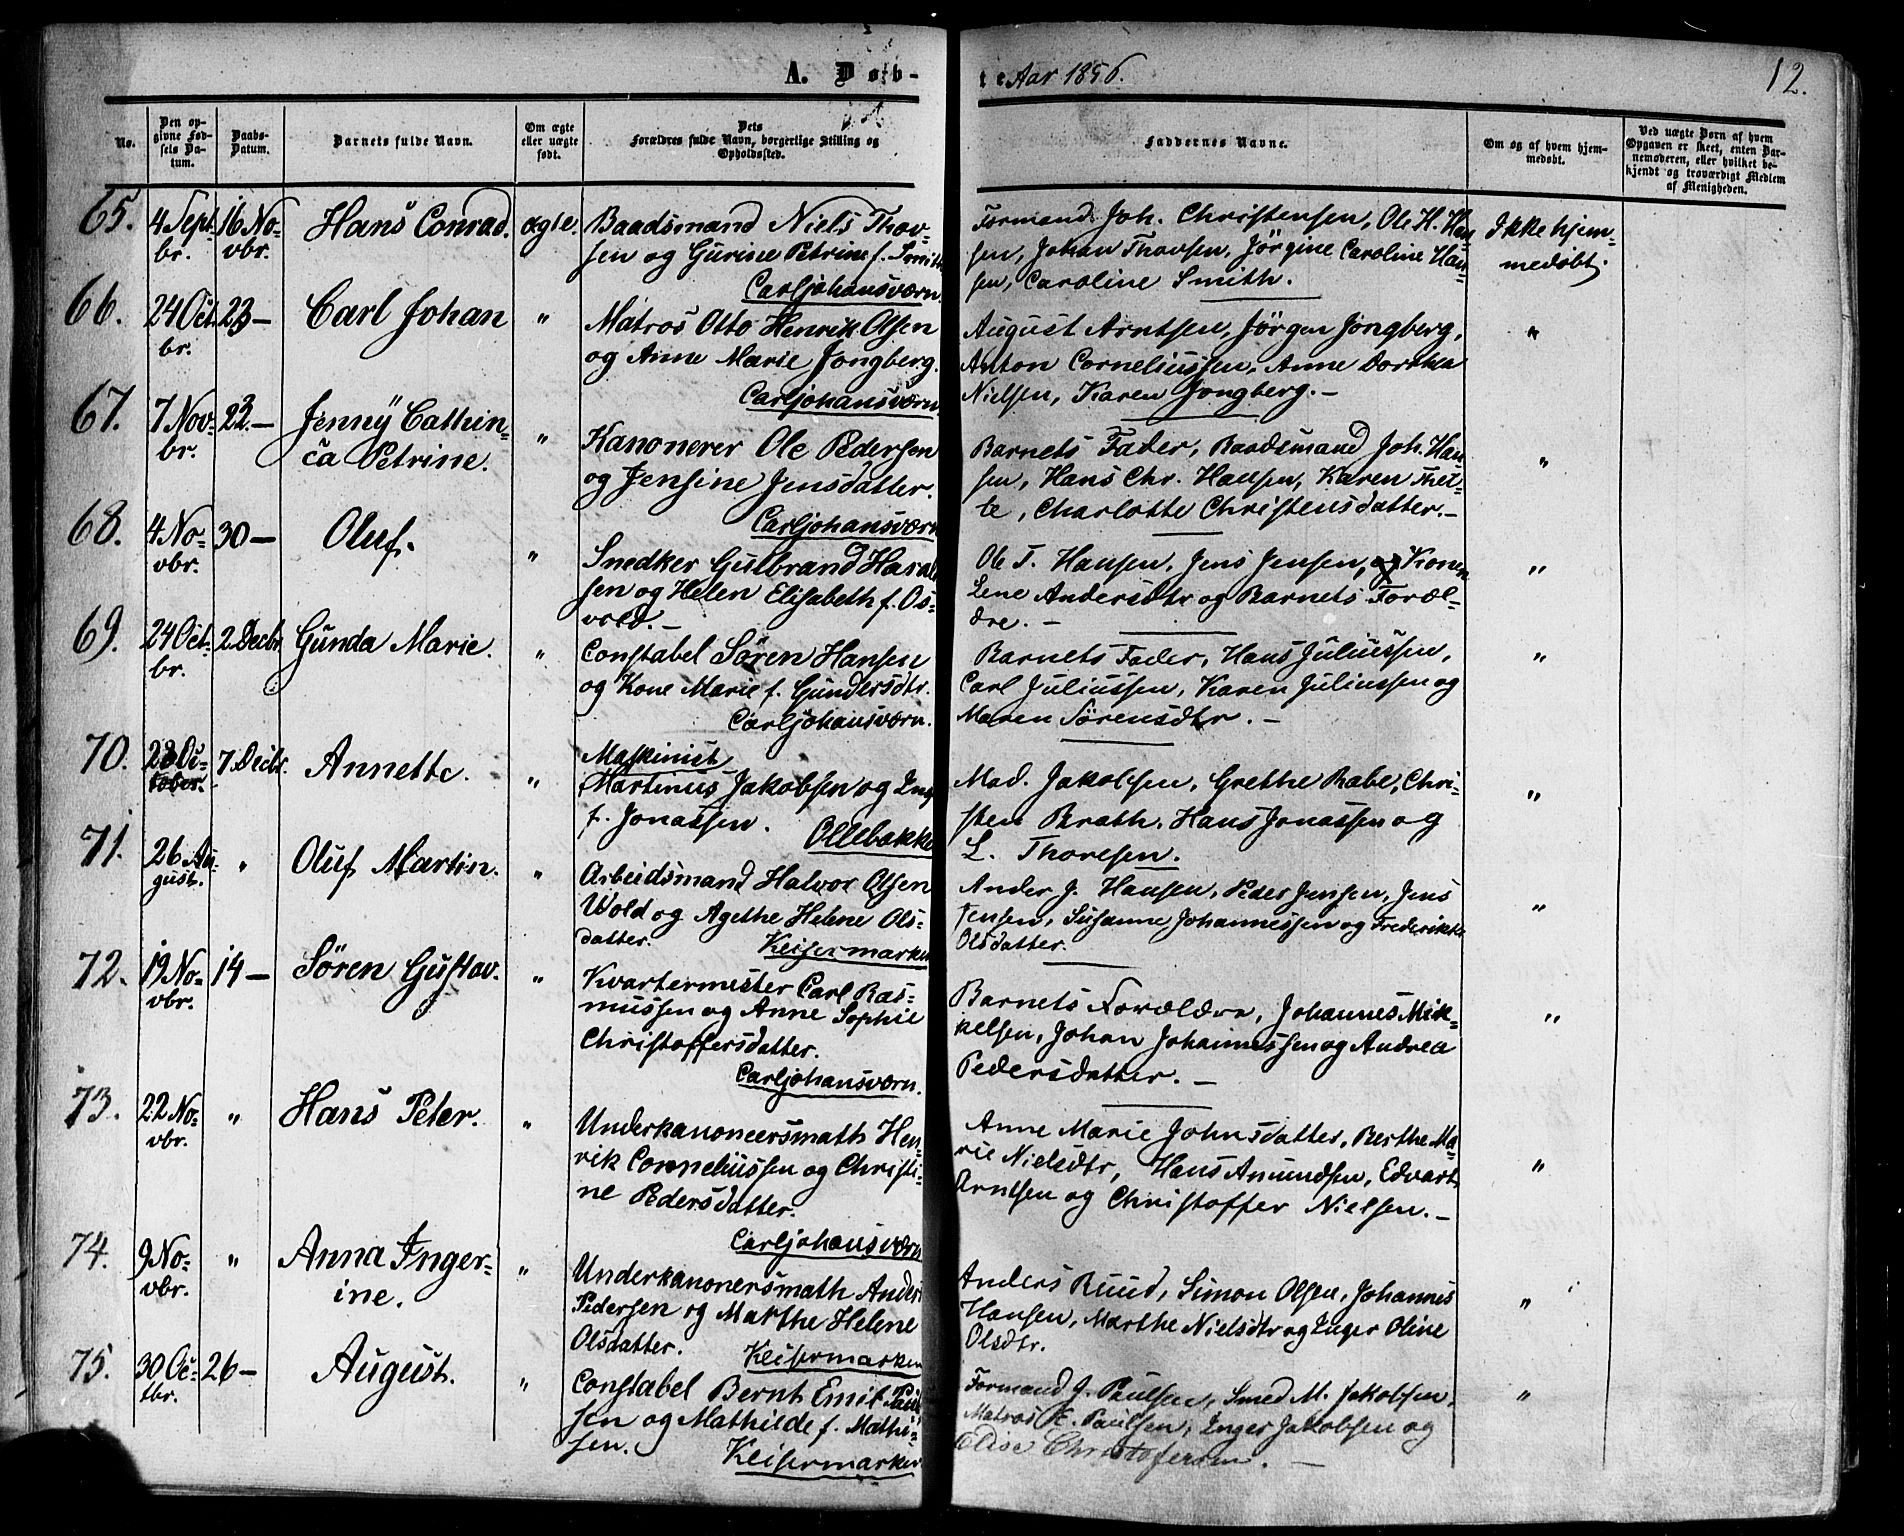 A. Døb-
te Aar 1856.
12.
No.
Den op-
givne Fød-
sels Da-
tum.
Daabs-
Datum.
Barnets fulde Navn.
Om ægte
eller uægte
født.
Dets
Forældres fulde Navn, borgerlige Stilling og
Opholdssted.
Faddernes Navne.
Om og af hvem hjem-
medøbt.
Ved uægte Børn af hvem
Opgaven er skeet, enten Bar-
nemoderen, eller hvilket be-
kjendt og troværdigt Medlem
af Menigheden.
65.
4 Sept-
br.
16 No-
vbr.
Hans Conrad.
ægte.
Baadsmand Niels Thov-
sen og Gurine Petrine f. Smith
Carljohansværn.
Formand Joh. Christensen, Ole H. Han-
sen, Johan Thovsen, Jörgine Caroline Han-
sen, Caroline Smith.
Ikke hjem-
medøbt.
66.
24 Oct-
br.
23 —
Carl Johan
"
Matros Otto Henrik Olsen
og Anne Marie Jongberg.
Carljohansværn
August Arntsen, Jörgen Jongberg,
Anton Corneliussen, Anne Dorthea
Nielsen, Karen Jongberg. —
"
67.
7 Nov-
br.
23 —
Jenny Cathin-
ca Petrine.
"
Kanonerer Ole Pedersen
og Jensine Jensdatter.
Carljohansværn
Barnets Fader, Baadsmand Joh. Han-
sen, Hans Chr. Hansen, Karen Thet-
te, Charlotte Christensdatter. —
"
68.
4 No-
vbr.
30 —
Oluf.
"
Snedker Gulbrand Haral
sen og Helen Elisabeth f. Os-
vold. —
Ole T. Hansen, Jens Jensen, og Konen
Lene Andersdtr og Barnets Foræl-
dre. —
"
69.
24 Oct-
br.
2 Decbr
Gunda Marie.
"
Constabel Sören Hansen
og Kone Marie f. Gundersdtr.
Carljohansværn.
Barnets Fader, Hans Juliussen,
Carl Juliussen, Karen Juliussen og
Maren Sörensdtr. —
"
70.
28 Oc-
tober.
7. Decbr.
Annette.
"
Maskinist
Martinus Jakobsen og Ing
f. Jonassen.
Ollebakke
Mad. Jakobsen, Grethe Rabe, Chri-
sten Brath, Hans Jonassen og
L. Thoresen.
"
71.
26 Au-
gust.
"
Oluf Martin.
"
Arbeidsmand Halvor Olsen
Wold og Agethe Helene Ols-
datter.
Keisermarken
Ander J. Hansen, Peder Jensen, Jens
Jensen, Susanne Johannessen og Frederikke
Olsdatter.
"
72.
19 No-
vbr.
14 —
Sören Gustav.
"
Kvartermester Carl Ras-
mussen og Anne Sophie
Christoffersdatter.
Carljohansværn.
Barnets Forældre, Johannes Mik-
kelsen, Johan Johannessen og Andrea
Pedersdatter. —
"
73.
22 No-
vbr.
"
Hans Peter.
"
Underkanoneersmath Hen-
rik Corneliussen og Christi-
ne Pedersdatter.
Carljohansværn
Anne Marie Johnsdatter, Berthe Ma-
rie Nielsdtr, Hans Amundsen, Edvart
Arntsen og Christoffer Nielsen. —
"
74.
9 No-
vbr.
"
Anna Inger-
ine.
"
Underkanonersmath Anders
Pedersen og Marthe Helene
Olsdatter.
Keisermarken
Anders Ruud, Simon Olsen, Johannes
Hansen, Marthe Nielsdtr og Inger Oline
Olsdtr.
"
75.
30 Oc-
tbr.
26 —
August.
"
Constabel Bernt Emil Paul
sen og Mathilde f. Mathi-
sen.
Keisermarken
Formand J. Paulsen, Smed M. Jakobsen,
Matros E. Paulsen, Inger Jakobsen og
Elise Christofersen. —
"